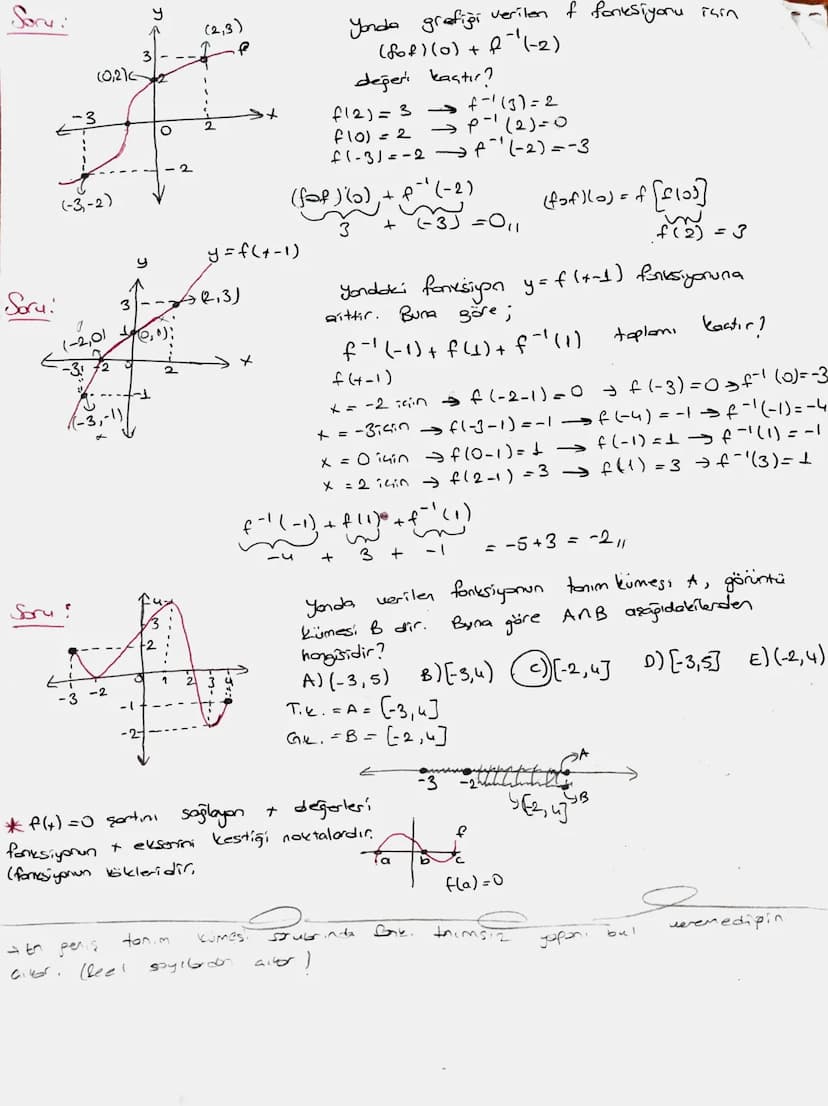 Soru:
y
(2,3)
3
f
(0,2)
2
-3
0
2
x
-2
(-3,-2)
Yanda grafiği verilen f fonksiyonu için
(fof)(0) + f⁻¹(-2)
değeri kaçtır?
f(2) = 3 → f⁻¹(3) = 2
f(0) = 2 → f⁻¹(2) = 0
f(-3) = -2 → f⁻¹(-2) = -3
(fof)(0) + f⁻¹(-2)
3 + (-3) = 0,,
(fof)(0) = f[f(0)]
f(2) = 3
Soru:
y
y = f(x-1)
3
(2,3)
(-2,0)
1
(0,1)
-3
-2
0
2
x
-1
(-3,-1)
Yandaki fonksiyon y = f(x-1) fonksiyonuna
aittir. Buna göre;
f⁻¹(-1) + f(1) + f⁻¹(1) toplamı kaçtır?
f(x-1)
x = -2 için → f(-2-1) = 0 → f(-3) = 0 → f⁻¹(0) = -3
x = -3 için → f(-3-1) = -1 → f(-4) = -1 → f⁻¹(-1) = -4
x = 0 için → f(0-1) = 1 → f(-1) = 1 → f⁻¹(1) = -1
x = 2 için → f(2-1) = 3 → f(1) = 3 → f⁻¹(3) = 1
f⁻¹(-1) + f(1) + f⁻¹(1)
-4 + 3 + -1 = -5+3 = -2,,
Soru:
4
3
2
-3
-2
0
1
2
3
4
-1
-2
Yanda verilen fonksiyonun tanım kümesi A, görüntü
kümesi B dir. Buna göre A∩B aşağıdakilerden
hangisidir?
A) (-3,5) B) [-3,4) C) [-2,4] D) [-3,5] E) (-2,4)
T.K. = A = [-3,4]
G.K. = B = [-2,4]
A
-3
-2
B
[-2,4]
* f(x)=0 şartını sağlayan x değerleri
fonksiyonun x eksenini kestiği noktalardır.
(fonksiyonun kökleridir.
a
b
c
f
f(a) = 0
→ En geniş tanım kümesi sorularında fonk. tanımsız yapanı bul
(Reel sayılardan